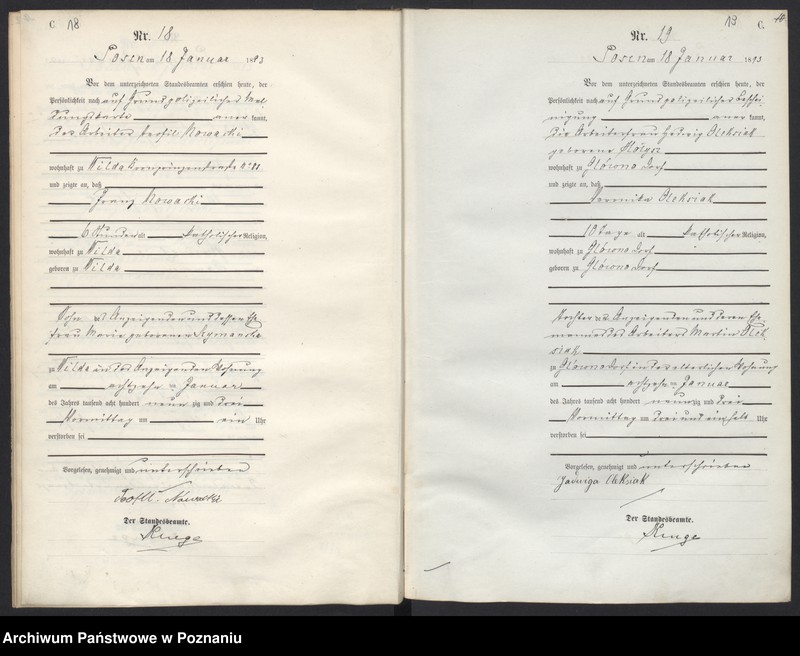 C. 18
Nr. 18
Posen am 18 Januar 1893
Vor dem unterzeichneten Standesbeamten erschien heute, der
Persönlichkeit nach auf Grund polizeilicher Mel
dungskarte anerkannt,
der Arbeiter Teofil Nowacki
wohnhaft zu Wilda Kronprinzenstraße
und zeigte an, daß
Franz Nowacki
6 Stunden alt katholischer Religion,
wohnhaft zu Wilda
geboren zu Wilda
Sohn des Anzeigenden und dessen Ehe
frau Marie geborenen
zu Wilda in des Anzeigenden Wohnung
am achtzehn ten Januar
des Jahres tausend acht hundert neun zig und drei
Vormittag um ein Uhr
verstorben sei
Vorgelesen, genehmigt und unterschrieben
Teofil Nowacki
Der Standesbeamte.
19 C.
Nr. 19
Posen am 18 Januar 1893
Vor dem unterzeichneten Standesbeamten erschien heute, der
Persönlichkeit nach auf Grund polizeilicher Beschei
nigung anerkannt,
die Arbeiterfrau Hedwig Oleksiak
geborene
wohnhaft zu Glówno Dorf
und zeigte an, daß
Veronika Oleksiak
10 Tage alt katholischer Religion,
wohnhaft zu Glówno Dorf
geboren zu Glówno Dorf
Tochter der Anzeigenden und deren Ehe
mannes des Arbeiters Martin Olek
siak
zu Glówno Dorf in der elterlichen Wohnung
am achtzehn ten Januar
des Jahres tausend acht hundert neunzig und drei
Vormittag um drei und ein halb Uhr
verstorben sei
Vorgelesen, genehmigt und unterschrieben
Jadwiga Oleksiak
Der Standesbeamte.
Archiwum Państwowe w Poznaniu